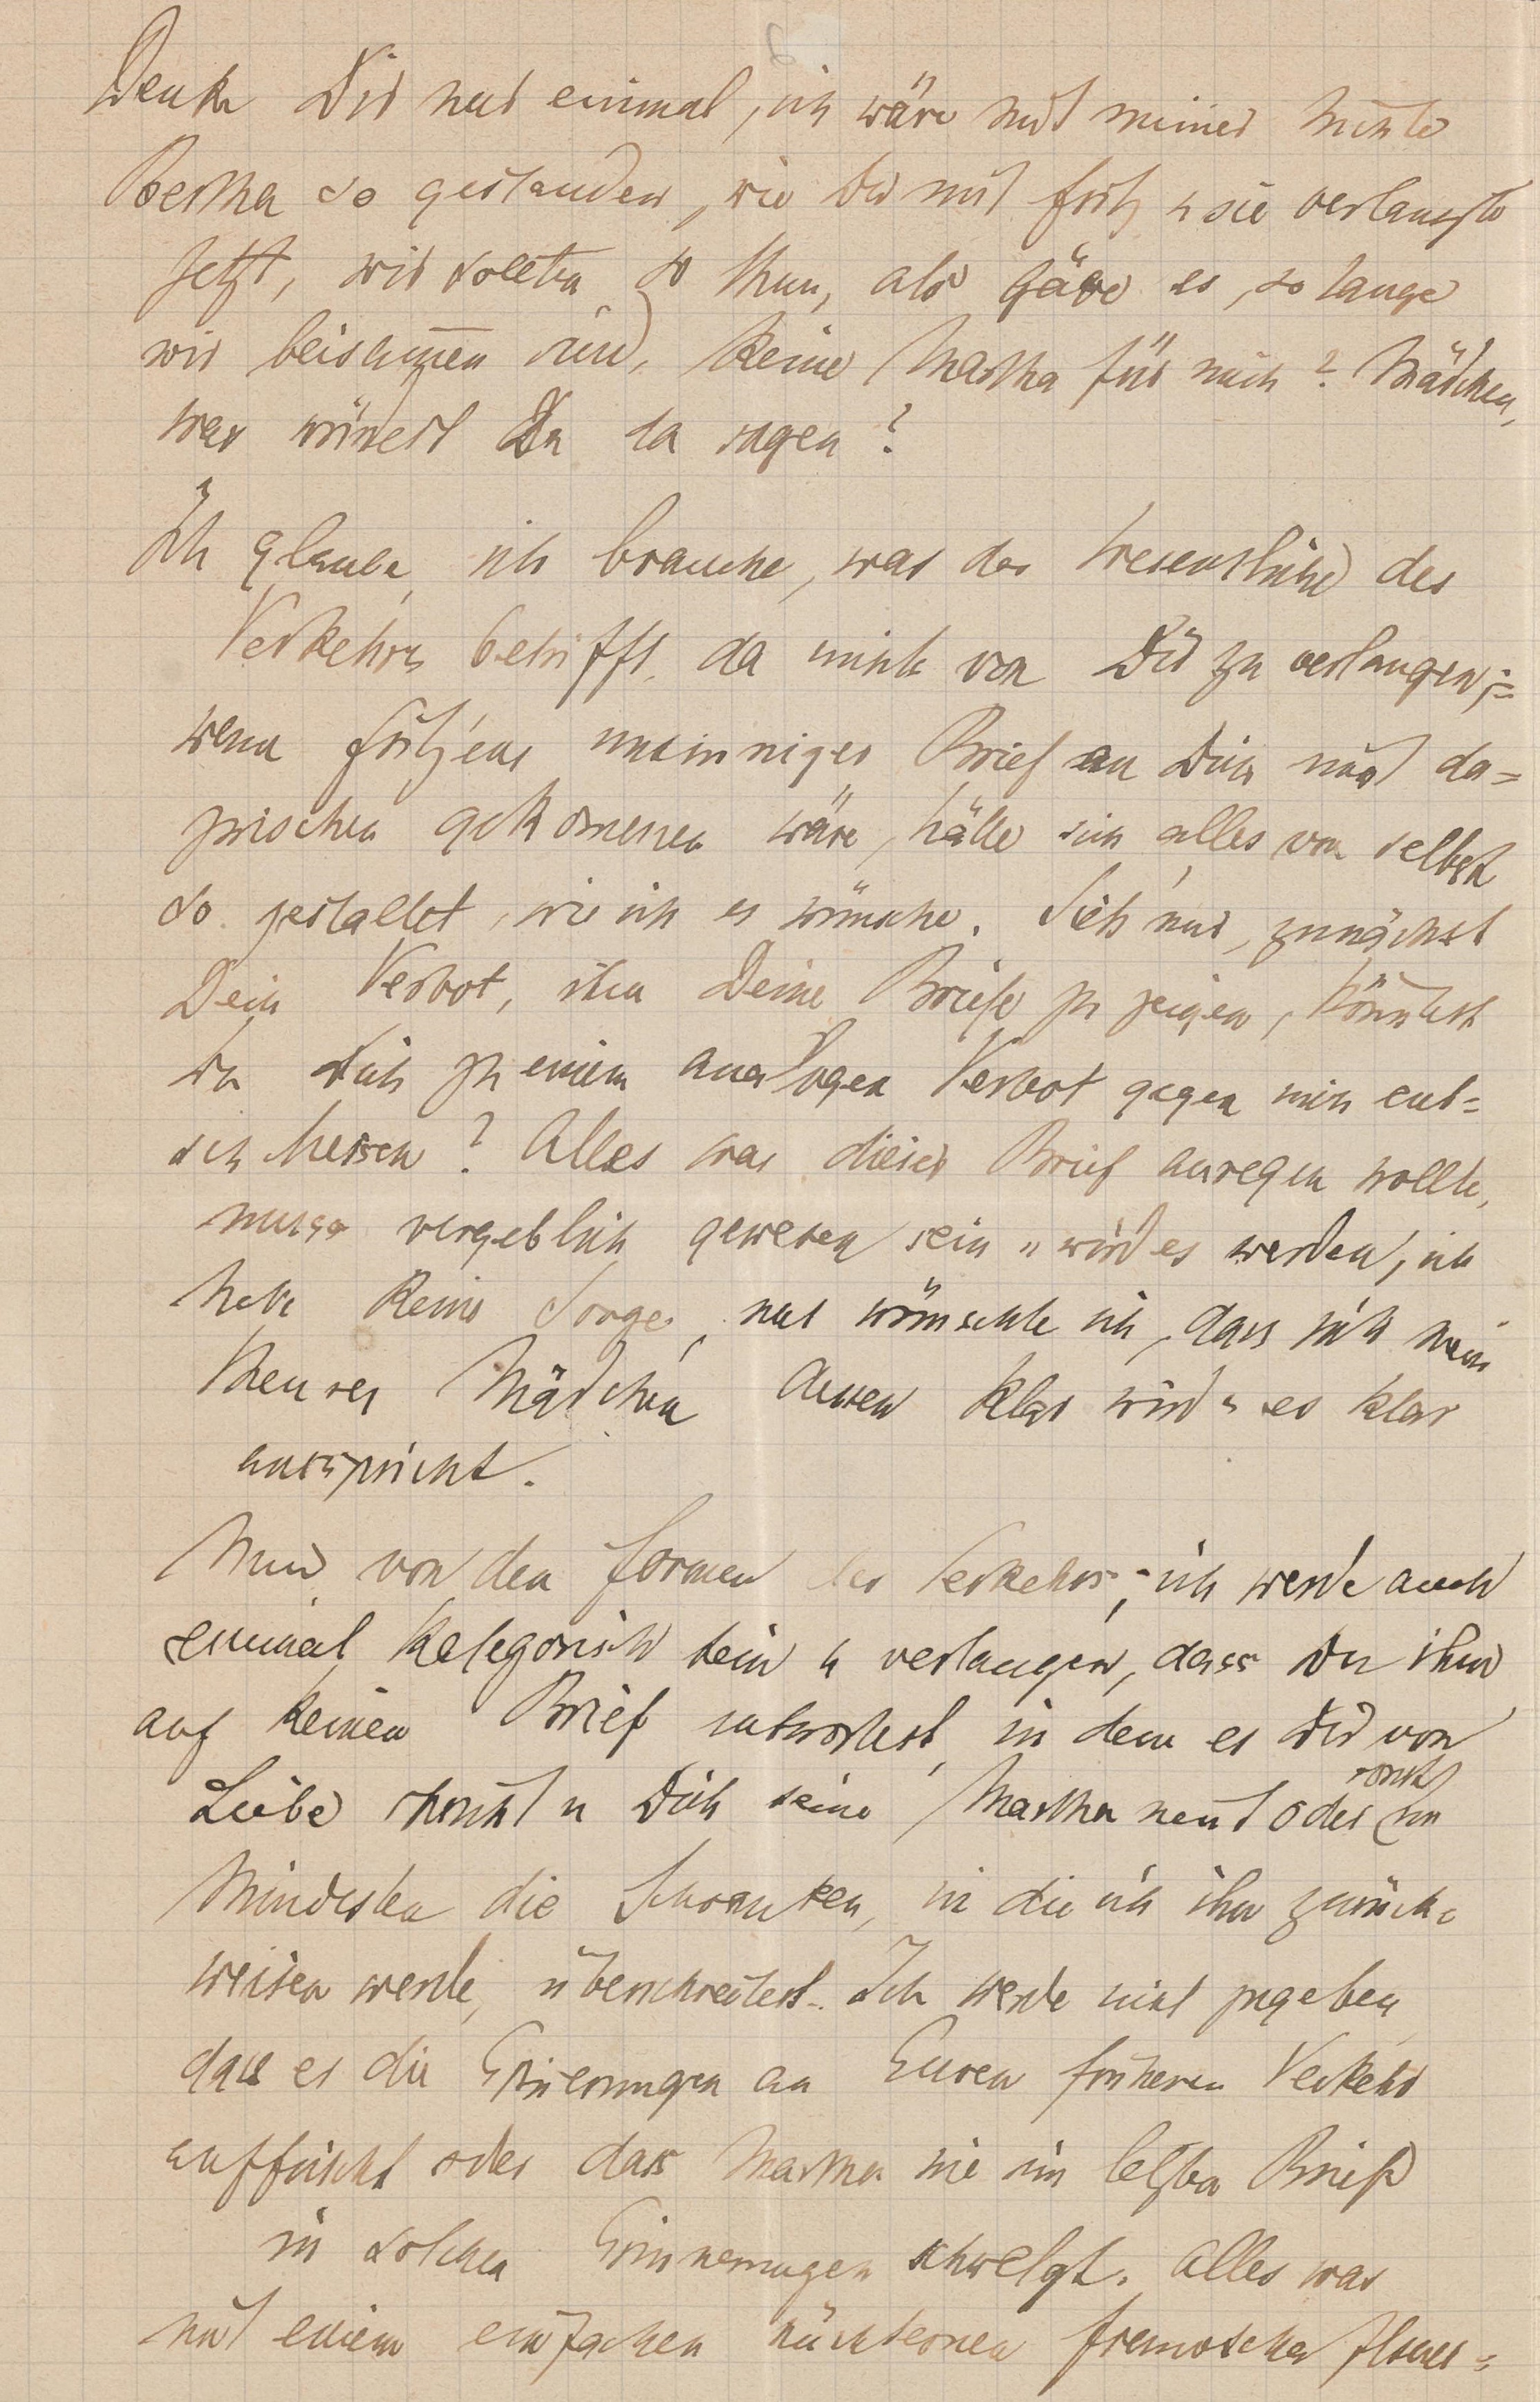 Denke Dir nur einmal, ich wäre mit meiner Nichte
Bertha so gestanden, wie Du mit Fritz u sie verlangte
jetzt, wir sollten so thun, als gäbe es, so lange
wir beisam̅en sind, keine Martha für mich? Mädchen,
was würdest Du da sagen?
Ich glaube, ich brauche, was das Wesentliche des
Verkehrs betrifft, da nichts von Dir zu verlangen;=
wenn Fritzens unsinniger Brief an Dich nicht da=
zwischen gekommen wäre, hätte sich alles von selbst
so gestaltet, wie ich es wünsche. Sieh nur, zunächst
Dein Verbot, ihm Deine Briefe zu zeigen, könntest
Du Dich zu einem analogen Verbot gegen mich ent=
schliessen? Alles was dieser Brief anregen wollte,
muss vergeblich gewesen sein u wird es werden, ich
habe keine Sorge, nur wünschte ich, dass sich mein
theures Mädchen dessen klar wird u es klar
ausspricht.
Nun von den Formen des Verkehrs; ich werde auch
einmal kategorisch sein u verlangen, dass Du ihm
auf keinen Brief antwortest, in dem er Dir von
Liebe spricht u Dich seine Martha nennt oder sonst im
Mindesten die Schranken, in die ich ihn zurück=
weisen werde, überschreitet. Ich werde nicht zugeben,
dass er die Erinerungen an Euren früheren Verkehr
auffrischt oder dass Martha wie im letzten Brief
in solchen Erinnerungen schwelgt. Alles was
mit einem einfachen nüchternen freundschaftlichen